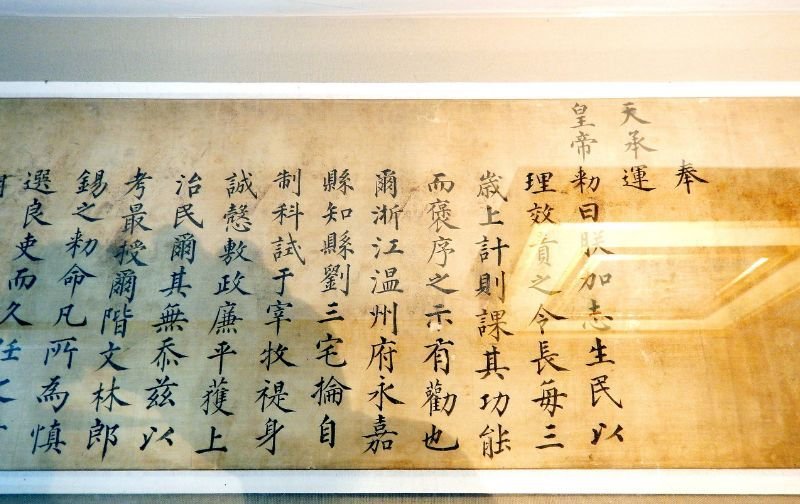 奉
天承運
皇帝勑曰朕加志生民以
理效責之令長每三
歲上計則課其功能
而褒序之示有勸也
爾浙江温州府永嘉
縣知縣劉三宅掄自
制科試于宰牧禔身
誠慤敷政廉平獲上
治民爾其無忝茲以
考最授爾階文林郎
錫之勑命凡所為慎
選良吏而久任